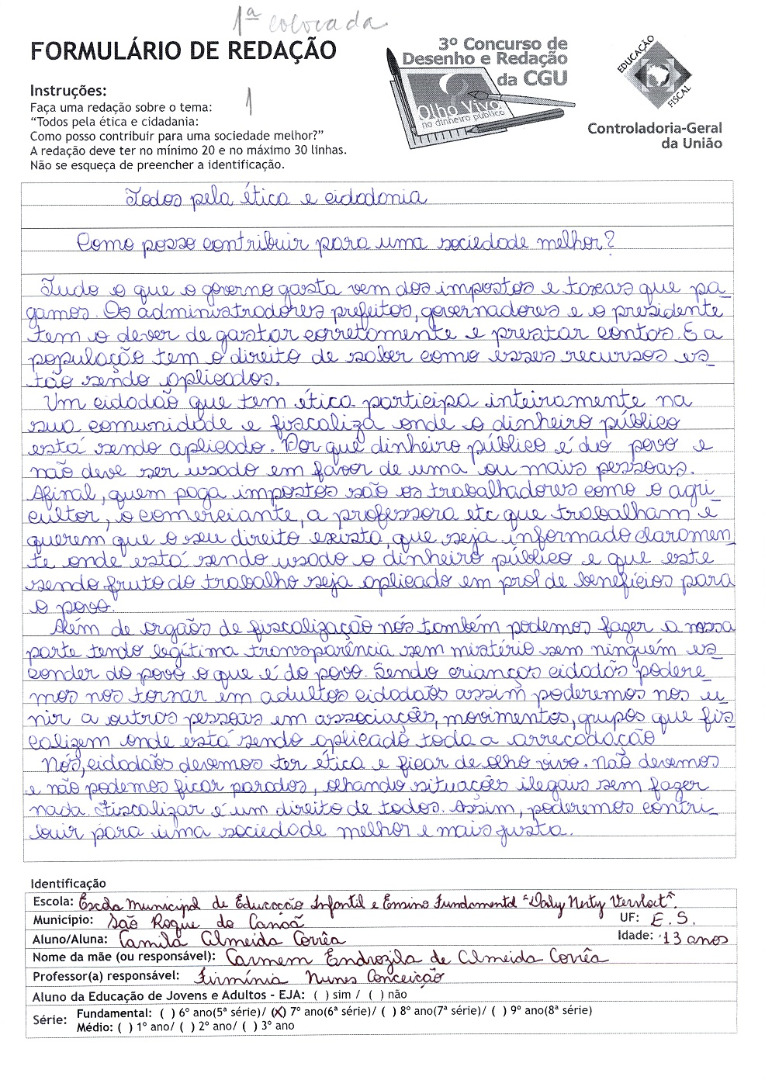 1ª colocada
FORMULÁRIO DE REDAÇÃO
3º Concurso de
Desenho e Redação
da CGU
Olho Vivo
no dinheiro público
EDUCAÇÃO
FISCAL
Controladoria-Geral
da União
Instruções:
Faça uma redação sobre o tema:
1
"Todos pela ética e cidadania:
Como posso contribuir para uma sociedade melhor?"
A redação deve ter no mínimo 20 e no máximo 30 linhas.
Não se esqueça de preencher a identificação.
Todos pela ética e cidadania
Como posso contribuir para uma sociedade melhor?
Tudo o que o governo gasta vem dos impostos e taxas que pa_
gamos. Os administradores prefeitos, governadores e o presidente
tem o dever de gastar corretamente e prestar contas. E a
população tem o direito de saber como esses recursos es_
tão sendo aplicados.
Um cidadão que tem ética participa inteiramente na
sua comunidade e fiscaliza onde o dinheiro público
está sendo aplicado. Por que dinheiro público é do povo e
não deve ser usado em favor de uma ou mais pessoas.
Afinal, quem paga impostos são os trabalhadores como o agri_
cultor, o comerciante, a professora etc que trabalham e
querem que o seu direito exista, que seja informado claramen_
te onde está sendo usado o dinheiro público e que este
sendo fruto do trabalho seja aplicado em prol de benefícios para
o povo.
Além de orgãos de fiscalização nós também podemos fazer a nossa
parte tendo legítima transparência sem mistério sem ninguém es_
conder do povo o que é do povo. Sendo crianças cidadãs podere_
mos nos tornar em adultos cidadãos assim poderemos nos u_
nir a outras pessoas em associações, movimentos, grupos que fis_
calizem onde está sendo aplicado toda a arrecadação
Nós, cidadãos devemos ter ética e ficar de olho vivo. Não devemos
e não podemos ficar parados, olhando situações ilegais sem fazer
nada. Fiscalizar é um direito de todos. Assim, poderemos contri_
buir para uma sociedade melhor e mais justa.
Identificação
Escola: Escola Municipal de Educação Infantil e Ensino Fundamental "Daly Nerty Vervloet".
Município: São Roque do Canaã UF: E.S.
Aluno/Aluna: Camila Almeida Corrêa Idade: 13 anos
Nome da mãe (ou responsável): Carmem Endrozila de Almeida Corrêa
Professor(a) responsável: Firmínia Nunes Conceição
Aluno da Educação de Jovens e Adultos - EJA: ( ) sim / ( ) não
Série: Fundamental: ( ) 6º ano(5ª série)/ (X) 7º ano(6ª série)/ ( ) 8º ano(7ª série)/ ( ) 9º ano(8ª série)
Médio: ( ) 1º ano/ ( ) 2º ano/ ( ) 3º ano